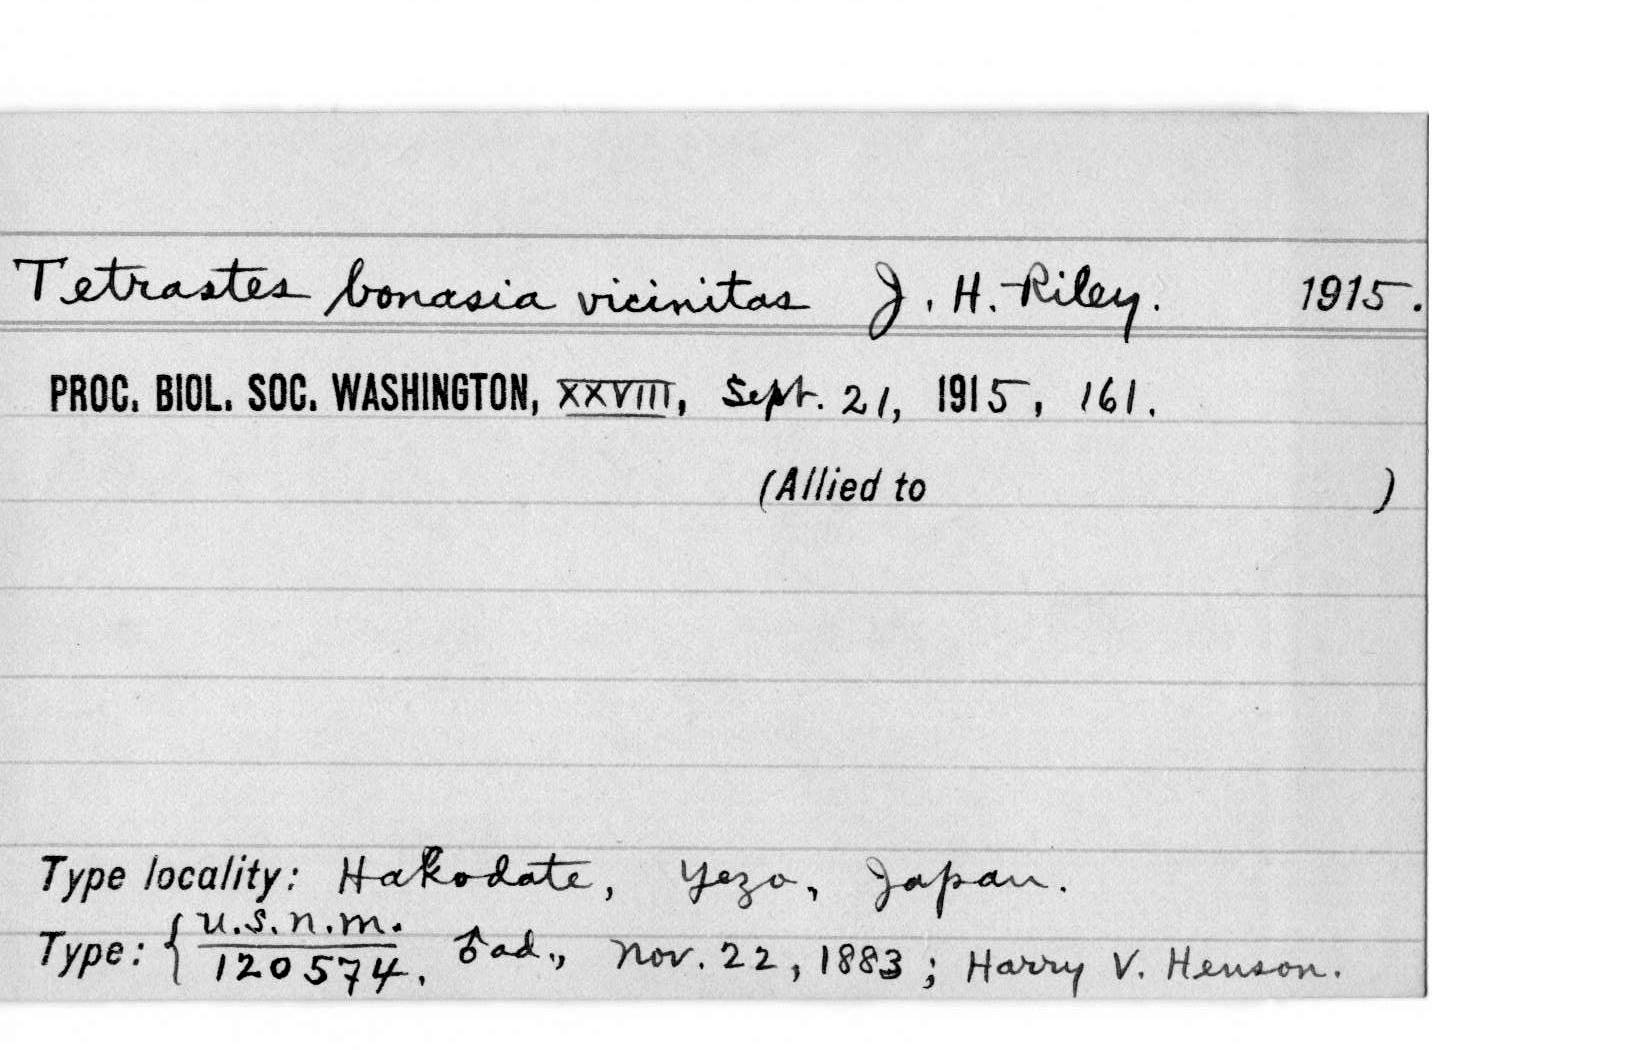 Tetrastes bonasia vicinitas J. H. Riley. 1915.
PROC. BIOL. SOC. WASHINGTON, XXVIII, Sept. 21, 1915, 161.
(Allied to )
Type locality: Hakodate, Yezo, Japan.
U.S.N.M.
Type: { 120574. ♂ ad., Nov. 22, 1883; Harry V. Henson.